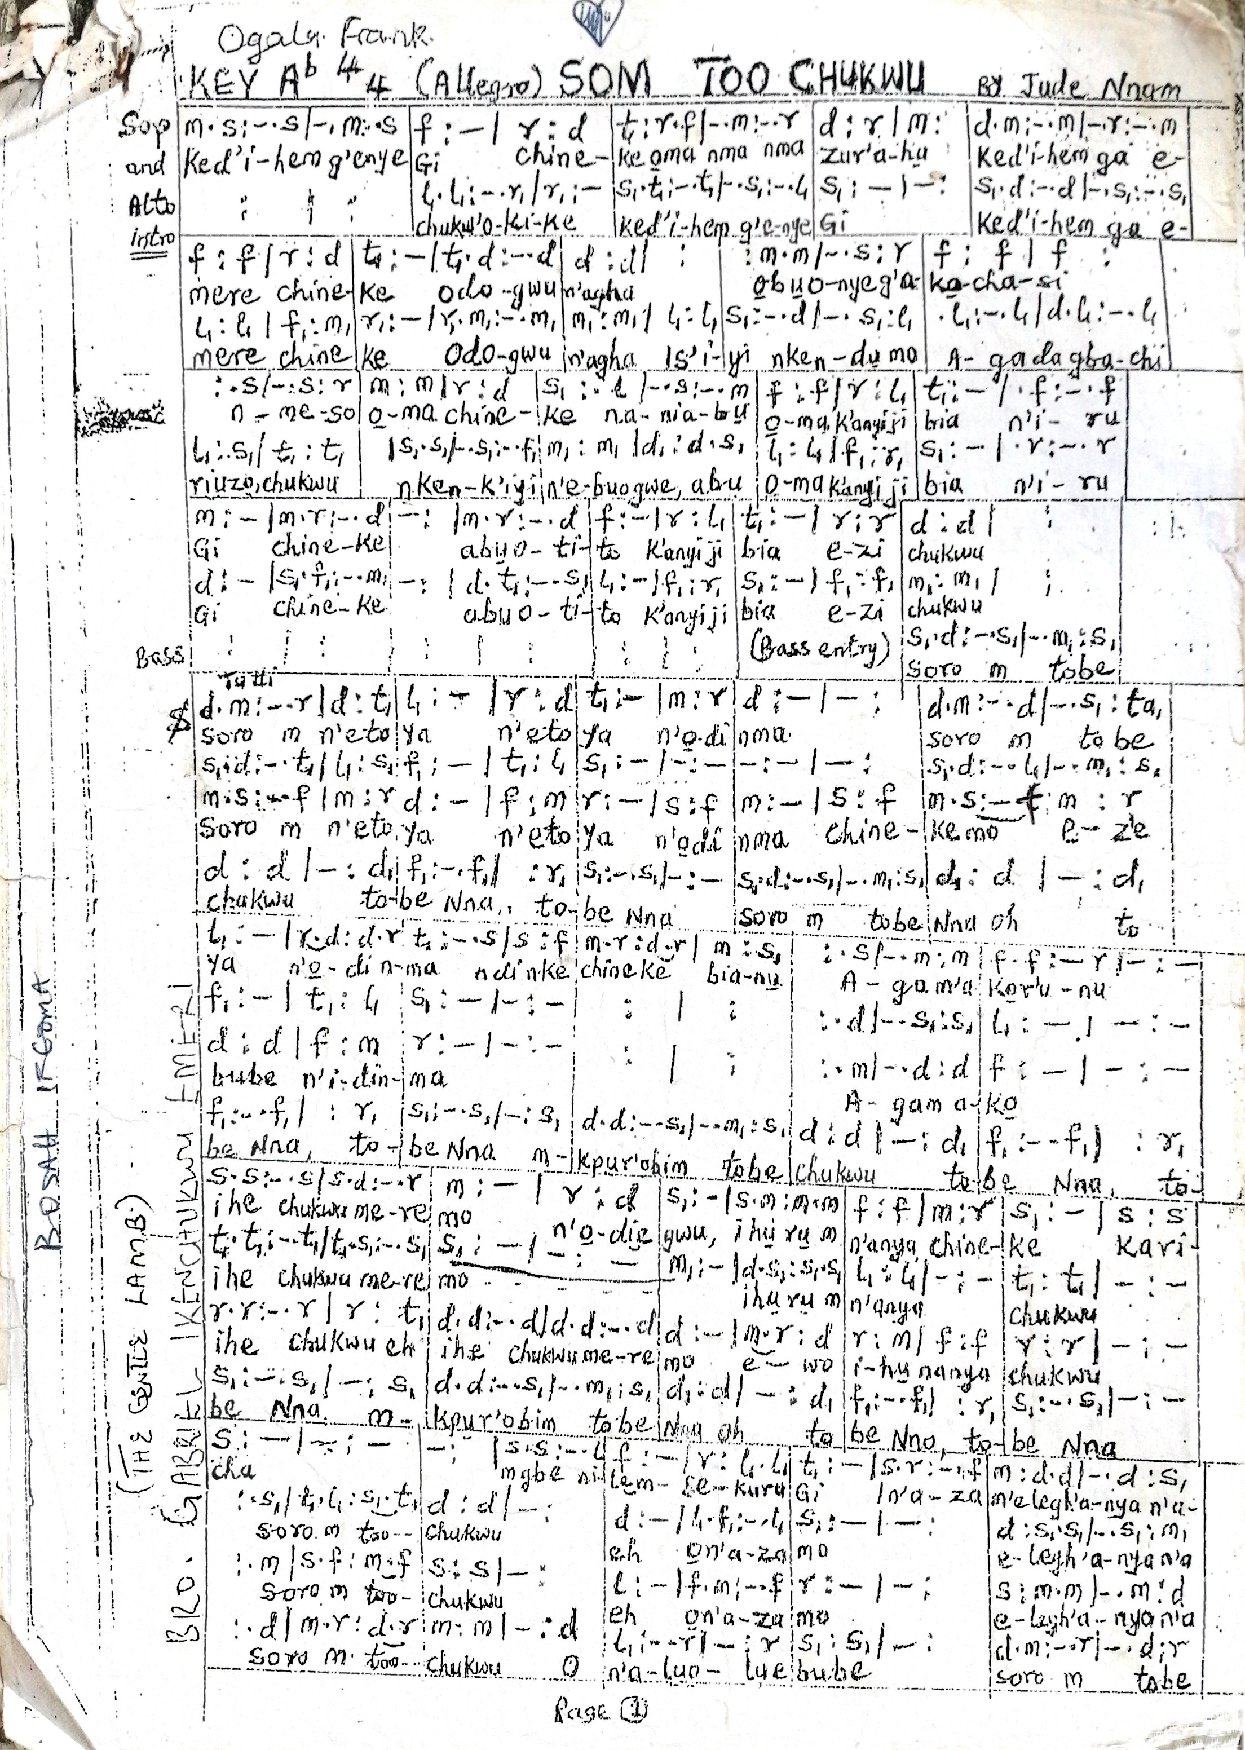 Ogala Frank
KEY A♭ 4/4 (Allegro) SOM TOO CHUKWU BY Jude Nnam
Sop m.s:-.s/-.m:-.s f:-/r:d t₁:r.f/-.m:-.r d:r/m: d.m:-.m/-.r:-.m
and Ked'i-hem g'enye Gi chine- ke oma nma nma zur'a-hu Ked'i-hem ga e-
Alto : / : l₁.l₁:-.r₁/r₁:- s₁.t₁:-.t₁/-.s₁:-.l₁ s₁:-/-: s₁.d:-.d/-.s₁:-.s₁
istro chukw'o-ki-ke Ked'i-hem g'e-nye Gi Ked'i-hem ga e-
f:f/r:d t₁:-/t₁.d:-.d d:d/ : :m.m/-.s:r f:f/f:
mere chine- ke odo-gwu n'agha obuo-nyeg'a- ko-cha-si
l₁:l₁/f₁:m₁ r₁:-/r₁.m₁:-.m₁ m₁:m₁/l₁:l₁ s₁:-.d/-.s₁:l₁ .l₁:-.l₁/d.l₁:-.l₁
mere chine ke odo-gwu n'agha Is'i-yi nken-du mo A-gadagba-chi
:.s/-:s:r m:m/r:d s₁:.l/-.s:-.m f:f/r:l₁ t₁:-/.f:-.f
n-me-so o-ma chine- ke na-nia-bu o-ma, k'anyiji bia n'i-ru
l₁:.s₁/t₁:t₁ /s.s/-.s₁:-.f₁ m₁:m₁/d₁:d.s₁ l₁:l₁/f₁:r₁ s₁:-/.r:-.r
riuzo, chukwu nken-k'iyi n'e-buogwe, abu o-ma k'anyiji bia n'i-ru
m:-/m.r:-.d -:/m.r:-.d f:-/r:l₁ t₁:-/r:r d:d/ :
Gi chine-ke abuo-ti- to k'anyiji bia e-zi chukwu
d:-/s₁.f₁:-.m₁ -:/d.t₁:-.s₁ l₁:-/f₁:r₁ s₁:-/f₁:f₁ m₁:m₁/ :
Gi chine-ke abuo-ti- to k'anyiji bia e-zi chukwu
Bass (Bass entry) s₁.d:-.s₁/-.m₁:s₁
soro m tobe
Tutti
d.m:-.r/d:t₁ l₁:-/r:d t₁:-/m:r d:-/-: d.m:-.d/-.s₁:ta₁
soro m n'eto ya n'eto ya n'o-di nma. soro m tobe
s₁.d:-.t₁/l₁:s₁ f₁:-/t₁:l₁ s₁:-/-:- -:-/-: s₁.d:-.l₁/-.m₁:s₁
m.s:-.f/m:r d:-/f:m r:-/s:f m:-/s:f m.s:-f m:r
soro m n'eto ya n'eto ya n'odi nma chine- ke mo e-ze
d:d/-:d₁ f₁:-.f₁/ :r₁ s₁:-.s₁/-:- s₁.d:-.s₁/-.m₁:s₁ d₁:d/-:d₁
chukwu to-be Nna, to-be Nna soro m tobe Nna oh to
t₁:-/r.d:d.r t₁:-.s/s:f m.r:d.r/m:s₁ :.s/-.m:m f.f:-r/-:-
ya n'o-din-ma ndinke chineke bia-nu A-gam'a kor'u-nu
f₁:-/t₁:l₁ s₁:-/-:- : / : :.d/-.s₁:s₁ l₁:-/-:-
d:d/f:m r:-/-:- : / : :.m/-.d:d f:-/-:-
bube n'i-din-ma A-gam a-ko
f₁:-.f₁/ :r₁ s₁:-.s₁/-:s₁ d.d:-.s₁/-.m₁:s₁ d:d/-:d₁ f₁:-.f₁/ :r₁
be Nna, to-be Nna m- kpur'obim tobe chukwu to-be Nna, to-
s.s:-.s/s.d:-.r m:-/r:d s₁:-/s.m:m.m f:f/m:r s₁:-/s:s
ihe chukwu me-re mo n'o-die gwu, ihu ru m n'anya chine-ke Kari-
t₁.t₁:-.t₁/t₁.s₁:-.s₁ s₁:-/-:- m₁:-/d.s₁:s₁.s₁ l₁:l₁/-:- t₁:t₁/-:-
ihe chukwu me-re mo ihu ru m n'anya chukwu
r.r:-.r/r:t₁ d.d:-.d/d.d:-.d d:-/m.r:d r:m/f:f r:r/-:-
ihe chukwu eh ihe chukwu me-re mo e-wo i-hu nanya chukwu
s₁:-.s₁/-:s₁ d.d:-.s₁/-.m₁:s₁ d₁:d/-:d₁ f₁:-.f₁/ :r₁ s₁:-.s₁/-:-
be Nna, m- kpur'obim tobe Nna oh to be Nna, to-be Nna
s:-/-:- -:/s.s:-.l f:-/r:l₁.l₁ t₁:-/s.r:-.f m:d.d/-.d:s₁
cha mgbe ni lem-se-kuru Gi /n'a-za m'elegh'a-nya n'a-
:.s₁/t₁.l₁:s₁.t₁ d:d/-: d:-/l₁.f₁:-.l₁ s₁:-/-: d:s₁.s₁/-.s₁:m₁
soro m too- chukwu eh on'a-za mo e-legh'a-nya n'a
:.m/s.f:m.f s:s/-: l:-/f.m:-.f r:-/-: s:m.m/-.m:d
soro m too- chukwu eh on'a-za mo e-legh'a-nya n'a
:.d/m.r:d.r m:m/-:d l₁:-.r/-:r s₁:s₁/-: d.m:-.r/-.d:r
soro m too- chukwu O n'a-luo-lue bube soro m tobe
Page ①
BOSAH IFEOMA
(THE GENTLE LAMB.)
BRO. GABRIEL IKENCHUKWU EMERI